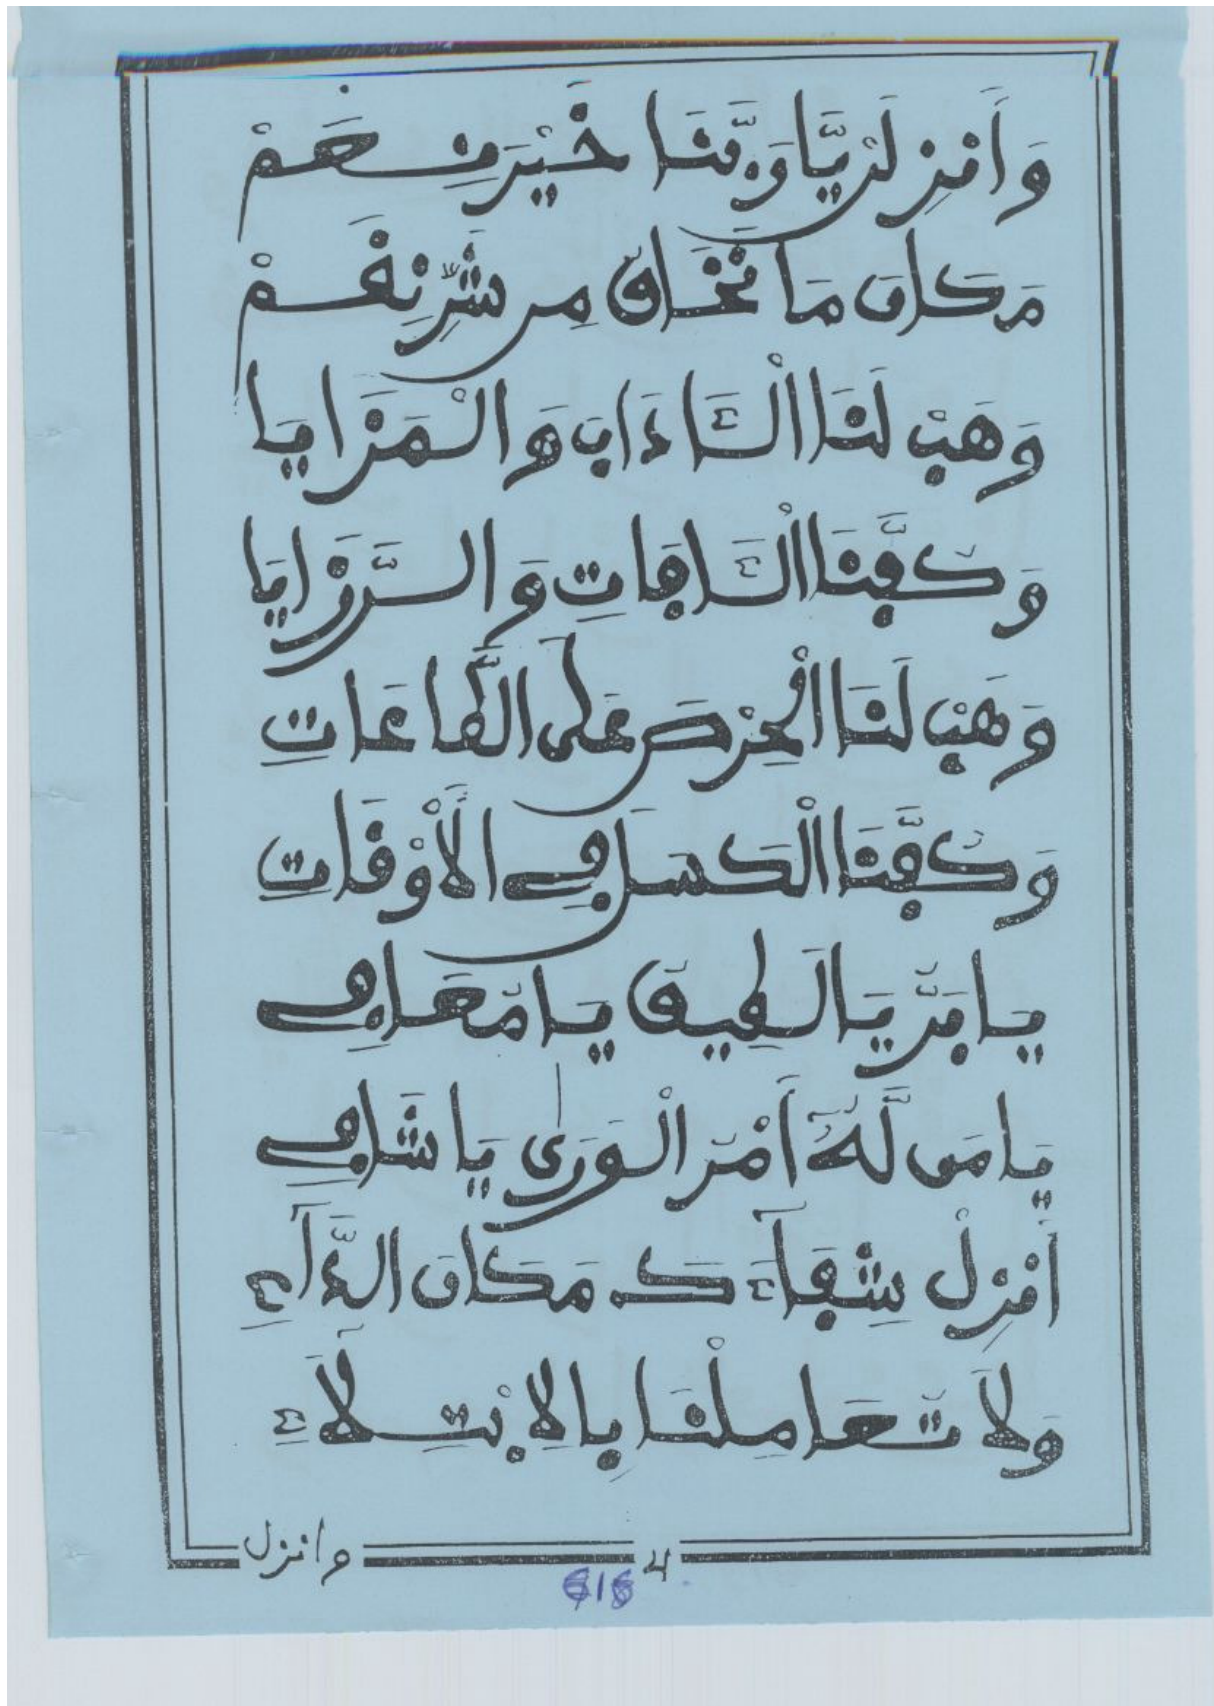 وَأَنزِلَنْ يَا رَبَّنَا خَيْرَ نِعَمْ
مَكَانَ مَا نَخَافُ مِن شَرِّ نِقَمْ
وَهَبْ لَنَا الْـَٔادَابَ وَالْمَزَايَا
وَكَفِّنَا الْـَٔافَاتِ وَالرَّزَايَا
وَهَبْ لَنَا الْحِرْصَ عَلَى الطَّاعَاتِ
وَكَفِّنَا الْكَسَلَ فِي الْأَوْقَاتِ
يَا بَرُّ يَا لَطِيفُ يَا مُعَافِي
يَا مَن لَّهُ أَمْرُ الْوَرَىٰ يَا شَافِي
أَنزِلْ شِفَآءَكَ مَكَانَ الدَّآءِ
وَلَا تُعَامِلْنَا بِالِابْتِلَآءِ
وانزل